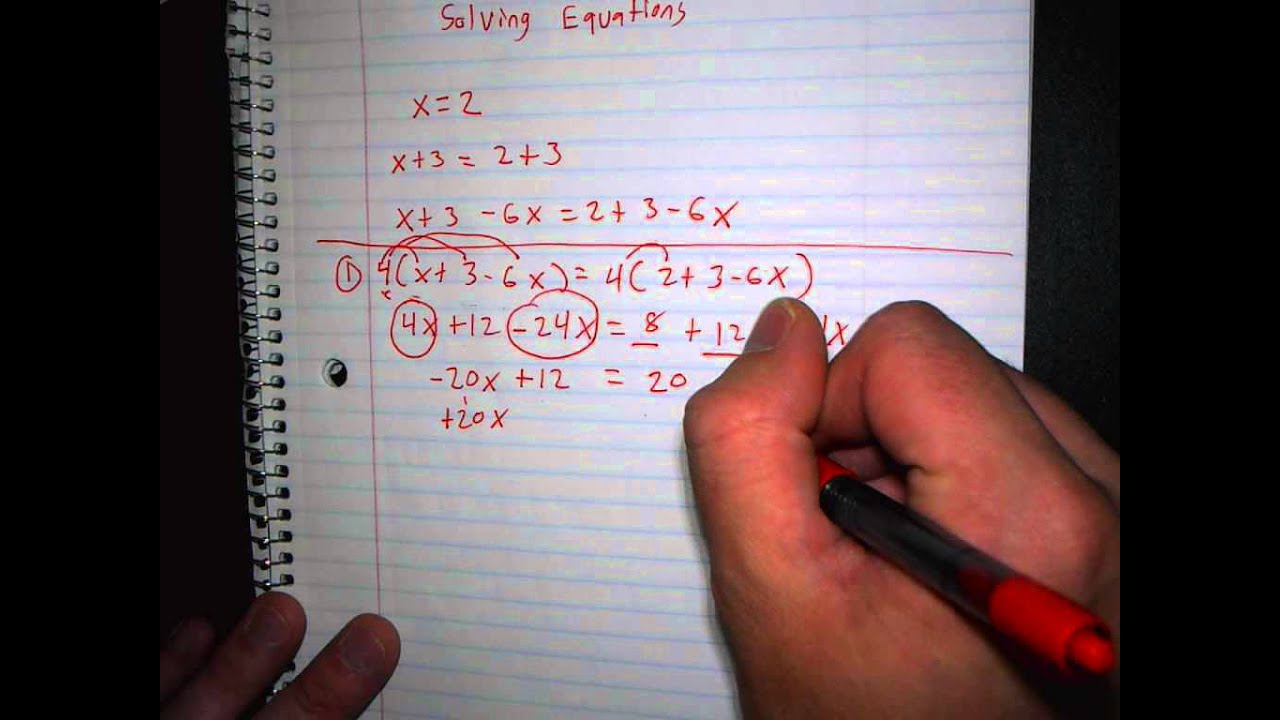 Solving Equations
x=2
x+3 = 2+3
x+3 -6x = 2+3-6x
① 4(x+3-6x) = 4(2+3-6x)
4x +12 -24x = 8 + 12 x
-20x +12 = 20
+20x